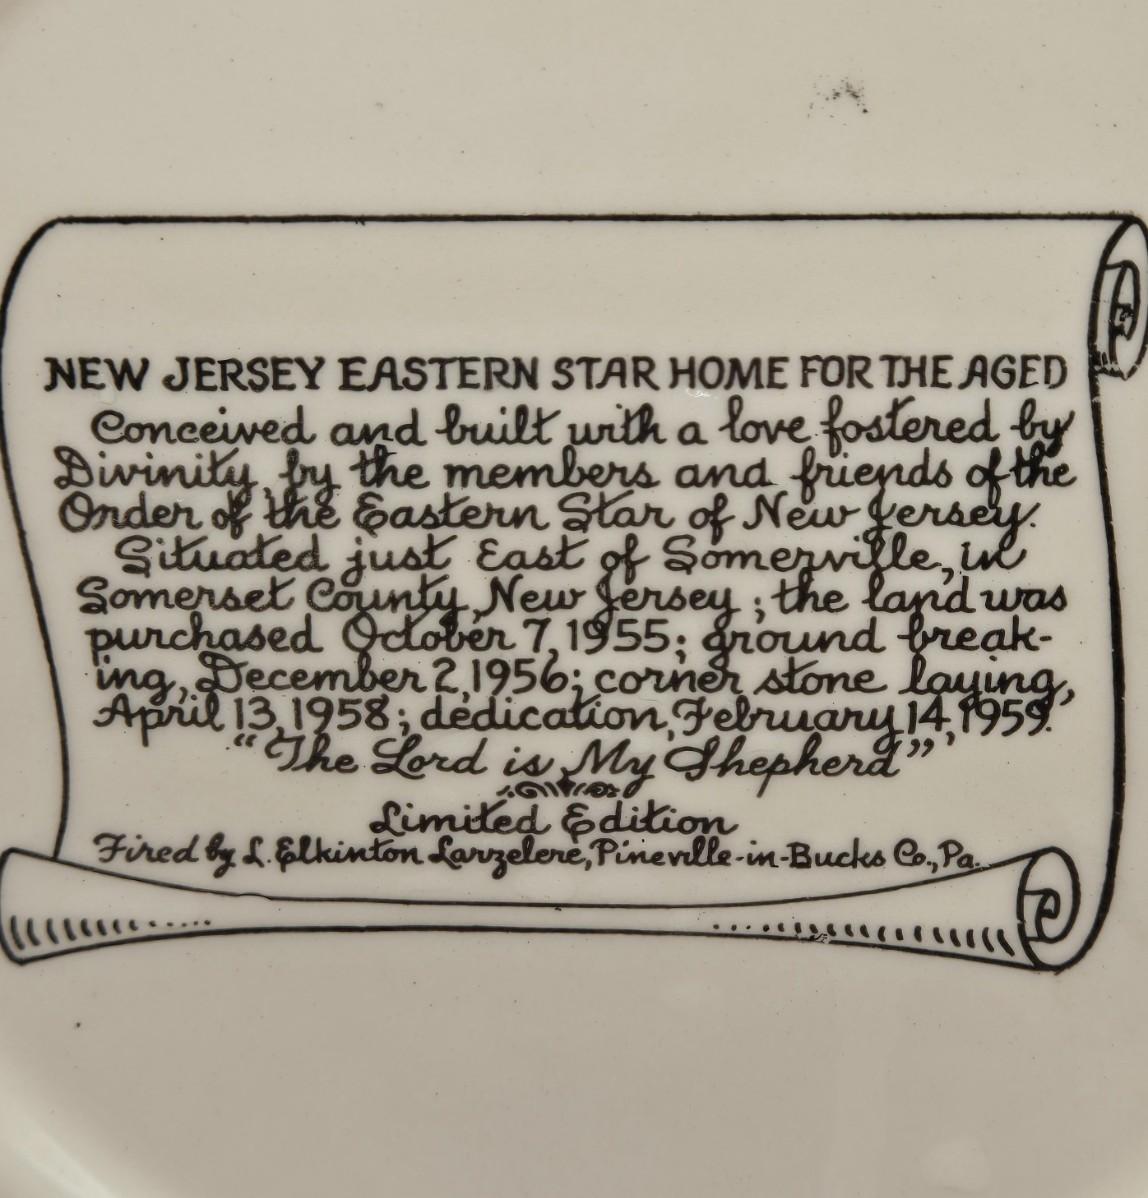 NEW JERSEY EASTERN STAR HOME FOR THE AGED
Conceived and built with a love fostered by
Divinity, by the members and friends of the
Order of the Eastern Star of New Jersey.
Situated just East of Somerville, in
Somerset County, New Jersey; the land was
purchased October 7, 1955; ground break-
ing, December 2, 1956; corner stone laying,
April 13, 1958; dedication, February 14, 1959.
"The Lord is My Shepherd"
Limited Edition
Fired by L. Elkinton Larzelere, Pineville-in-Bucks Co., Pa.